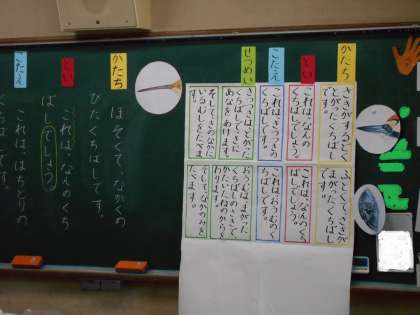 かたち
さきがするどく
とがったくちばし
です。
とい
これは、なんの
くちばしでしょう。
こたえ
これは、きつつきの
くちばしです。
せつめい
きつつきは、とがった
くちばしで、きに
あなをあけます。
そして、きのなかに
いるむしをたべます。
ふとくて、さきが
まがったくちばし
です。
これは、なんのくち
ばしでしょう。
これは、おうむのく
ちばしです。
おうむは、まがった
くちばしのさきで、
かたいたねのからを
わります。
そして、なかのみを
たべます。
かたち
ほそくて、ながくの
びたくちばしです。
とい
これは、なんのくち
ばしでしょう。
こたえ
これは、はちどりの
くちばしです